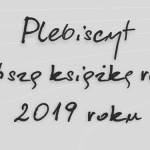 Plebiscyt
książkę
2019 roku